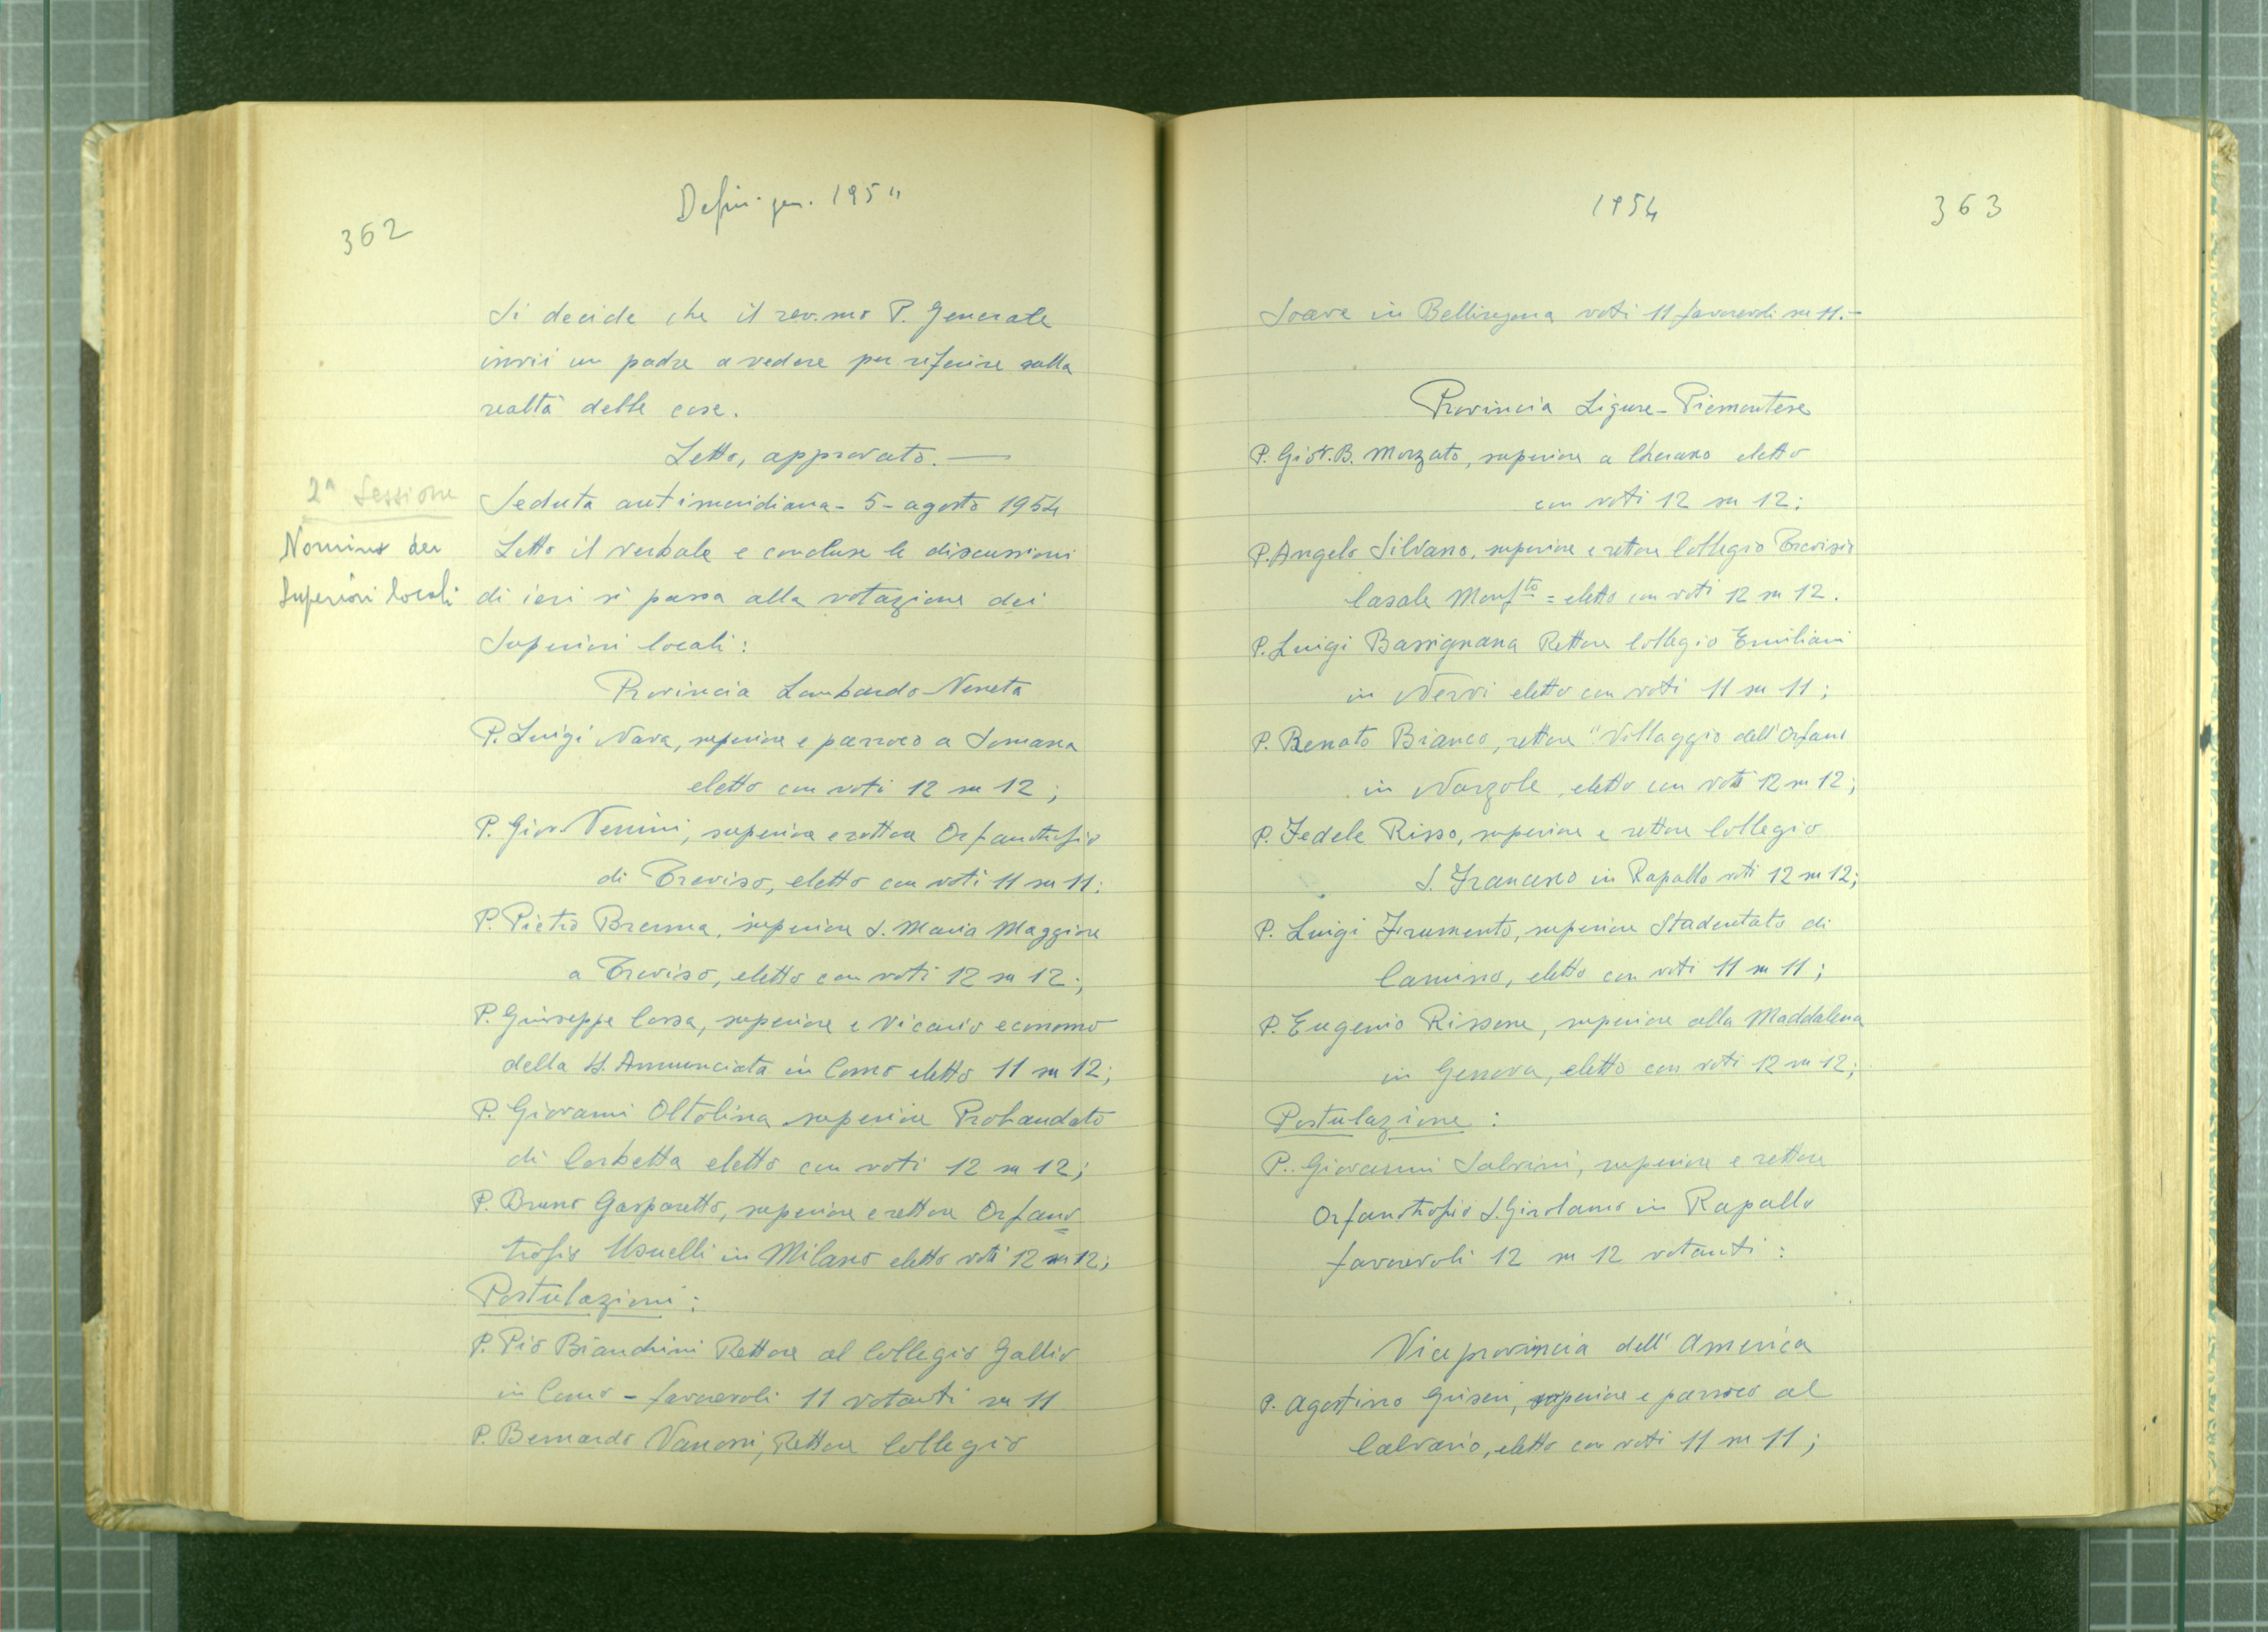 362
Defin. gen. 1954
Si decide che il rev.mo P. Generale
invii un padre a vedere per riferire sulla
realtà delle cose.
Letto, approvato. —
2ª Sessione
Seduta antimeridiana - 5 - agosto 1954
Nomina dei
Superiori locali
Letto il verbale e concluse le discussioni
di ieri si passa alla votazione dei
Superiori locali:
Provincia Lombardo-Veneta
P. Luigi Nava, superiore e parroco a Somasca
eletto con voti 12 su 12;
P. Giov. Venini, superiore e rettore Orfanotrofio
di Treviso, eletto con voti 11 su 11;
P. Pietro Brenna, superiore S. Maria Maggiore
a Treviso, eletto con voti 12 su 12;
P. Giuseppe Cossa, superiore e Vicario economo
della SS. Annunciata in Como eletto 11 su 12;
P. Giovanni Oltolina superiore Probandato
di Corbetta eletto con voti 12 su 12;
P. Bruno Gasparetto, superiore e rettore Orfano=
trofio Usuelli in Milano eletto voti 12 su 12;
Postulazioni:
P. Pio Bianchini Rettore al Collegio Gallio
in Como - favorevoli 11 votanti su 11
P. Bernardo Vanossi, Rettore Collegio
1954
363
Soave in Bellinzona voti 11 favorevoli su 11.-
Provincia Ligure-Piemontese
P. Giov. B. Morzato, superiore a Cherasco eletto
con voti 12 su 12;
P. Angelo Silvano, superiore e rettore Collegio Trevisio
Casale Monf.to = eletto con voti 12 su 12.
P. Luigi Bassignana Rettore Collegio Emiliani
in Nervi eletto con voti 11 su 11;
P. Renato Bianco, rettore "Villaggio dell'Orfano
in Narzole, eletto con voti 12 su 12;
P. Fedele Risso, superiore e rettore Collegio
S. Francesco in Rapallo voti 12 su 12;
P. Luigi Frumento, superiore Studentato di
Camino, eletto con voti 11 su 11;
P. Eugenio Rissone, superiore alla Maddalena
in Genova, eletto con voti 12 su 12;
Postulazione:
P. Giovanni Salvini, superiore e rettore
Orfanotrofio S. Girolamo in Rapallo
favorevoli 12 su 12 votanti:
Viceprovincia dell'America
P. Agostino Griseri, superiore e parroco al
Calvario, eletto con voti 11 su 11;